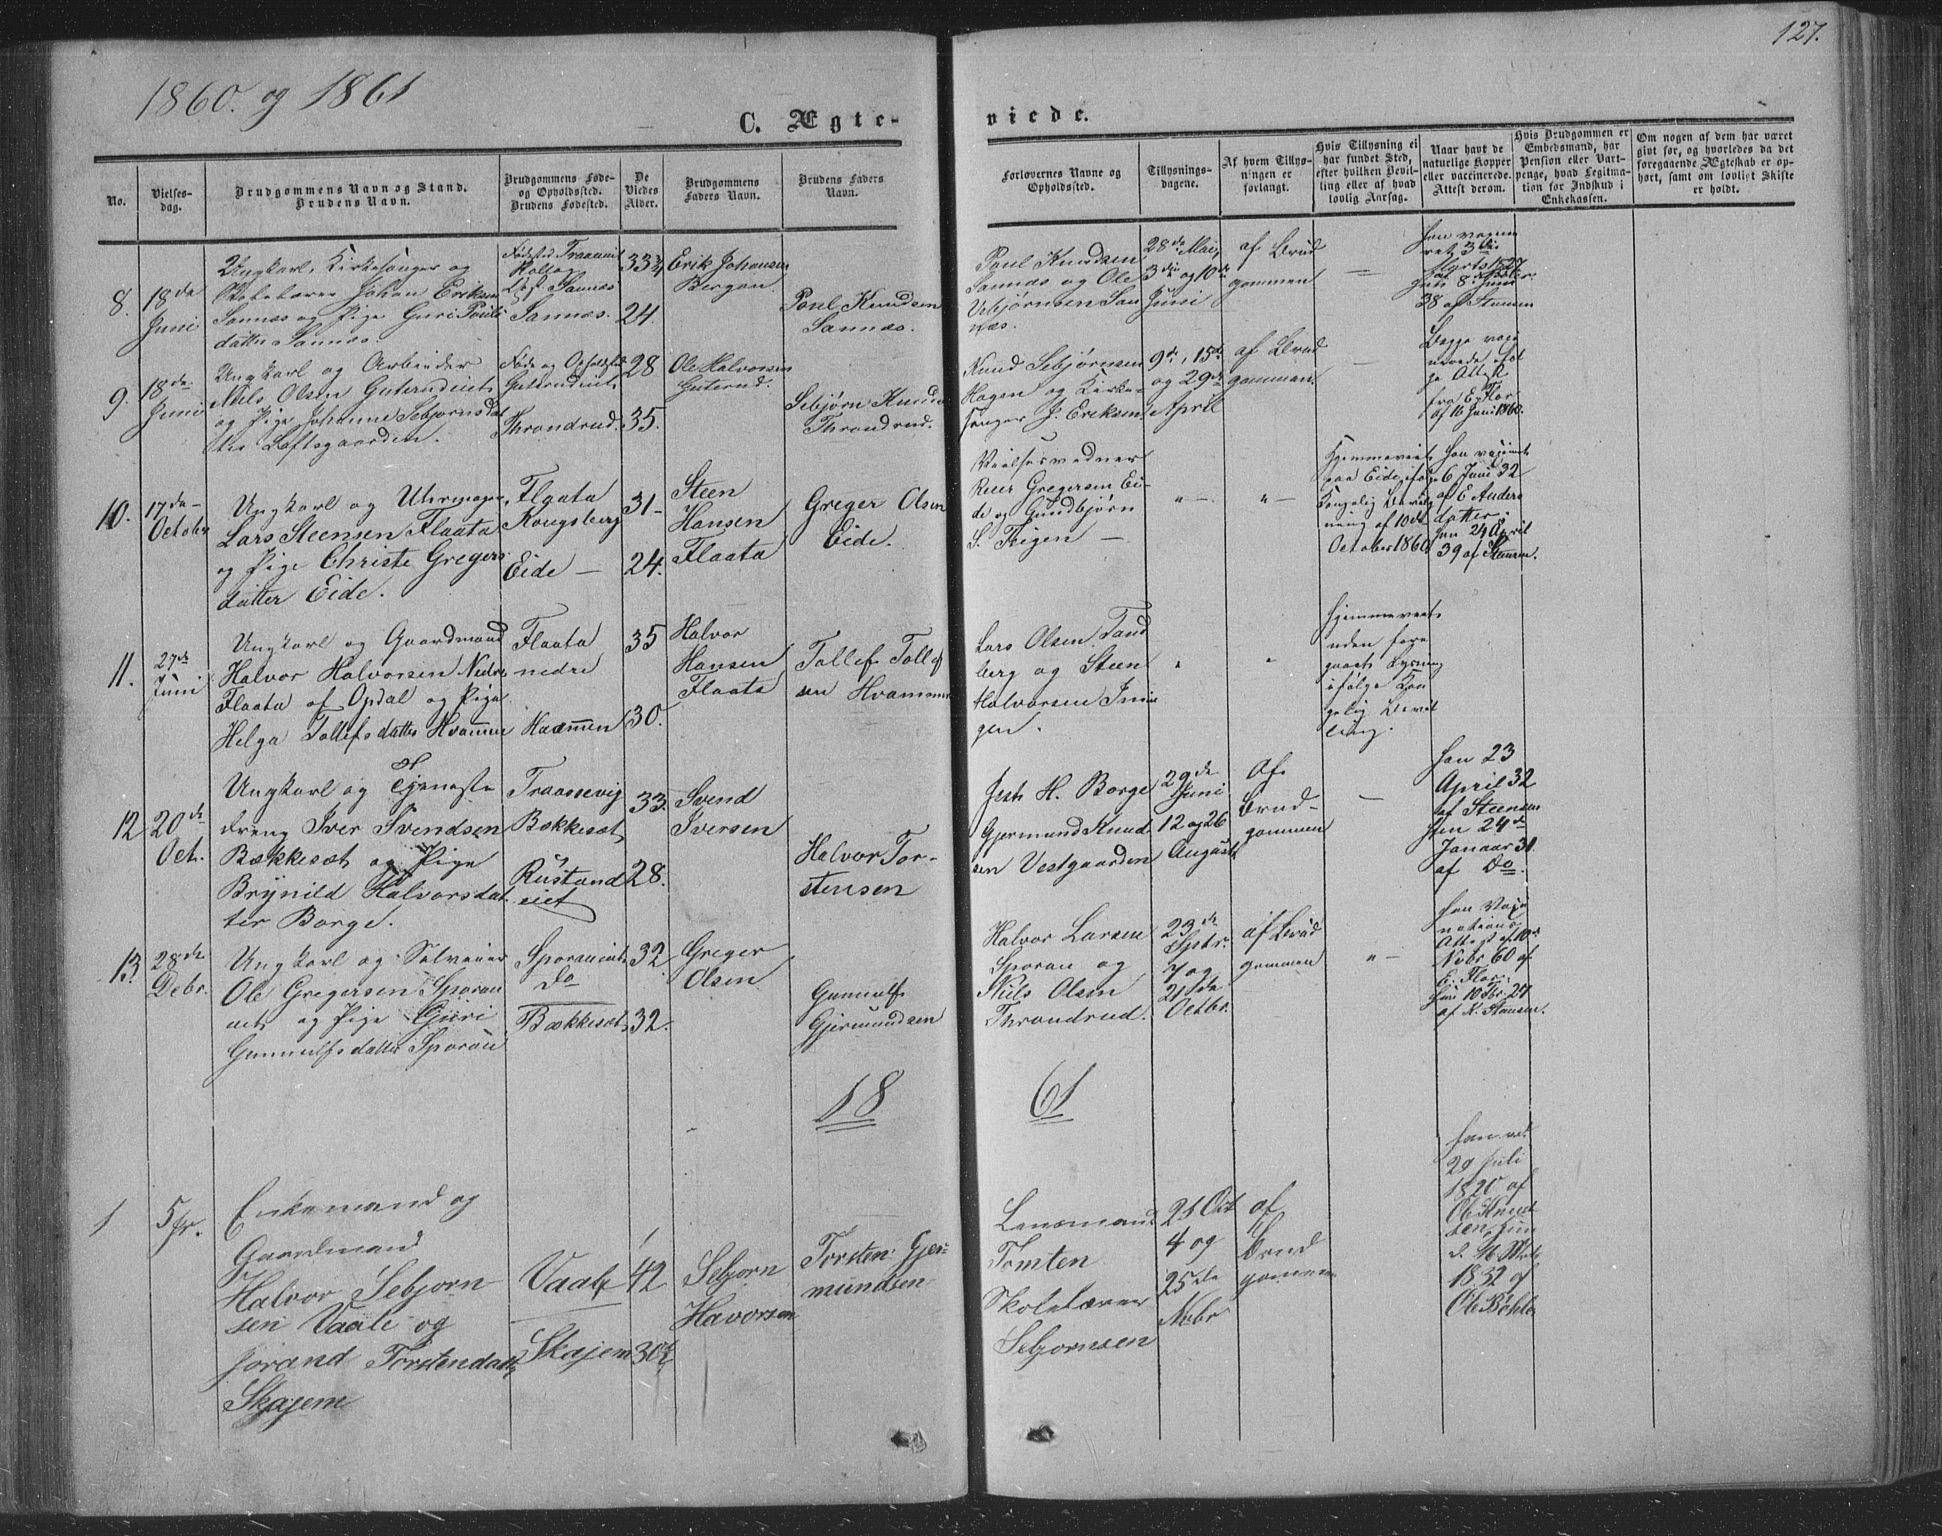 127.
1860. og 1861
C. Ægte-
viede.
No.
Vielses-
dag.
Brudgommens Navn og Stand.
Brudens Navn.
Brudgommens Føde-
og Opholdssted.
Brudens Fødested.
De
Viedes
Alder.
Brudgommens
Faders Navn.
Brudens Faders
Navn.
Forlovernes Navne og
Opholdssted.
Tillysnings-
dagene.
Af hvem Tillys-
ningen er
forlangt.
Hvis Tillysning ei
har fundet Sted,
efter hvilken Bevil-
ling eller af hvad
lovlig Aarsag.
Naar havt de
naturlige Kopper
eller vaccinerede.
Attest derom.
Hvis Brudgommen er
Embedsmand, har
Pension eller Vart-
penge, hvad Legitma-
tion for Indskud i
Enkekassen.
Om nogen af dem har været
givt før, og hvorledes da det
foregaaende Ægteskab er op-
hørt, samt om lovligt Skifte
er holdt.
8.
18de
Juni
Ungkarl, Kirkesanger og
Skolelærer Johan Eriksen
Sannæs og Pige Guri Pouls
datter Sannæs.
Sannæs.
33½
24.
Erik Johansen
Bergan.
Poul Knudsen
Sannæs.
Poul Knudsen
Sannæs og Ole
Uebjørnsen San
næs.
28de Mai,
3die og 10de
Juni
af Brud
gommen
9.
18de
Juni
Ungkarl og Arbeider
Nils Olsen Guterudeiet
og Pige Johanne Sebjørnsdat
ter Loftsgaarden.
Føde og Opholdsted
Guterudeiet
Throndrud.
28
35.
Ole Halvorsen
Guterud.
Sebjørn Knuds
Throndrud.
Knud Sebjørnsen
Hagen og Kirke-
sanger J. Eriksen
9de, 15de
og 29de
April
af Brud
gommen.
Begge vaxi
nerede
fra E. Flor
af 16 Juni 1860.
10.
17de
October
Ungkarl og Uhrmager
Lars Steensen Flaata
og Pige Christe Gregers
datter Eide.
Flaata
Kongsberg
Eide
31
24.
Steen
Hansen
Flaata
Greger Olsen
Eide.
Vielsesvidner
Reier Gregersen Ei-
de og Gundbjørn
S. Frigen
" —
" —
Hjemmeviet
paa Eide ifølge
Kongelig Bevilg
ning af 10de
October 1860
Han vaxinert
6 Juni 32
af E Anders
datter.
Hun 24 April
39 af Steensen.
11.
27de
Juni
Ungkarl og Gaardmand
Halvor Halvorsen Nedre
Flaata af Opdal og Pige
Helga Tollefsdatter Hvammen
Flaata
nedre
Hvammen
35
30.
Halvor
Hansen
Flaata
Tollef Tollef
sen Hvammen
Lars Olsen Tand
berg og Steen
Halvorsen Inin
gen.
"
"
Hjemmeviet
uden fore
gaaet Lysning
ifølge Kon
gelig Bevil
ling.
12
20de
Oct.
Ungkarl og Tjeneste
dreng Iver Svendsen
Bækkesæt og Pige
Brynild Halvorsdat
ter Borge.
Traaesevig
Bækkesæt
Rustand
eiet
33.
28.
Svend
Iversen
Halvor Tor-
stensen
H. Borge
Gjermund Knud
sen Vestgaarden
29de
Juni
12 og 26
August
Af
Brud-
gommen
Han 23
April 32
af Steensen
Hun 24de
Januar 31
af Do.
13.
28de
Debr.
Ungkarl og Selveier
Ole Gregersen Sporan
eiet og Pige Guri
Gunnulfsdatter Sporan
Sporaneiet
Do
Bækkesæt
32
32.
Greger
Olsen
Gunnulf
Gjermundsen
Halvor Larsen
Sporan og
Nils Olsen
Throndrud.
23de
Septr.
7 og
21de
Octbr.
af Brud
gommen
" —
Han Vaxi
nations
Attest af 10de
Novbr 60 af
E. Flor.
18
61
1
5 Jr.
Enkemand og
Gaardmand
Halvor Sebjørn
sen Vaale og
Jorand Torstendatt
Skajem
Vaale
Skajem
42
30½
Sebjørn
Havorsen
Torsten Gjer-
mundsen
Lensmand
Tomten
Skolelærer
Sebjørnsen
21 Oct
4 og
25de
Nvbr
af
Brud
gommen
Han vac.
29 Juli
1820 af
Ole Knud
sen, hun
1832 af
Ole Bøhle